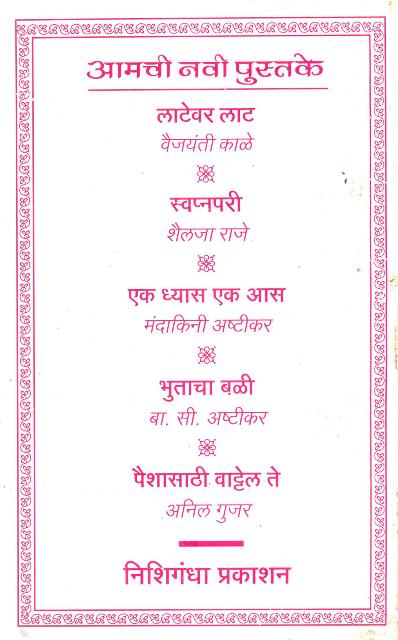 आमची नवी पुस्तके
लाटेवर लाट
वैजयंती काळे
स्वप्नपरी
शैलजा राजे
एक ध्यास एक आस
मंदाकिनी अष्टीकर
भुताचा बळी
बा. सी. अष्टीकर
पैशासाठी वाट्टेल ते
अनिल गुजर
निशिगंधा प्रकाशन